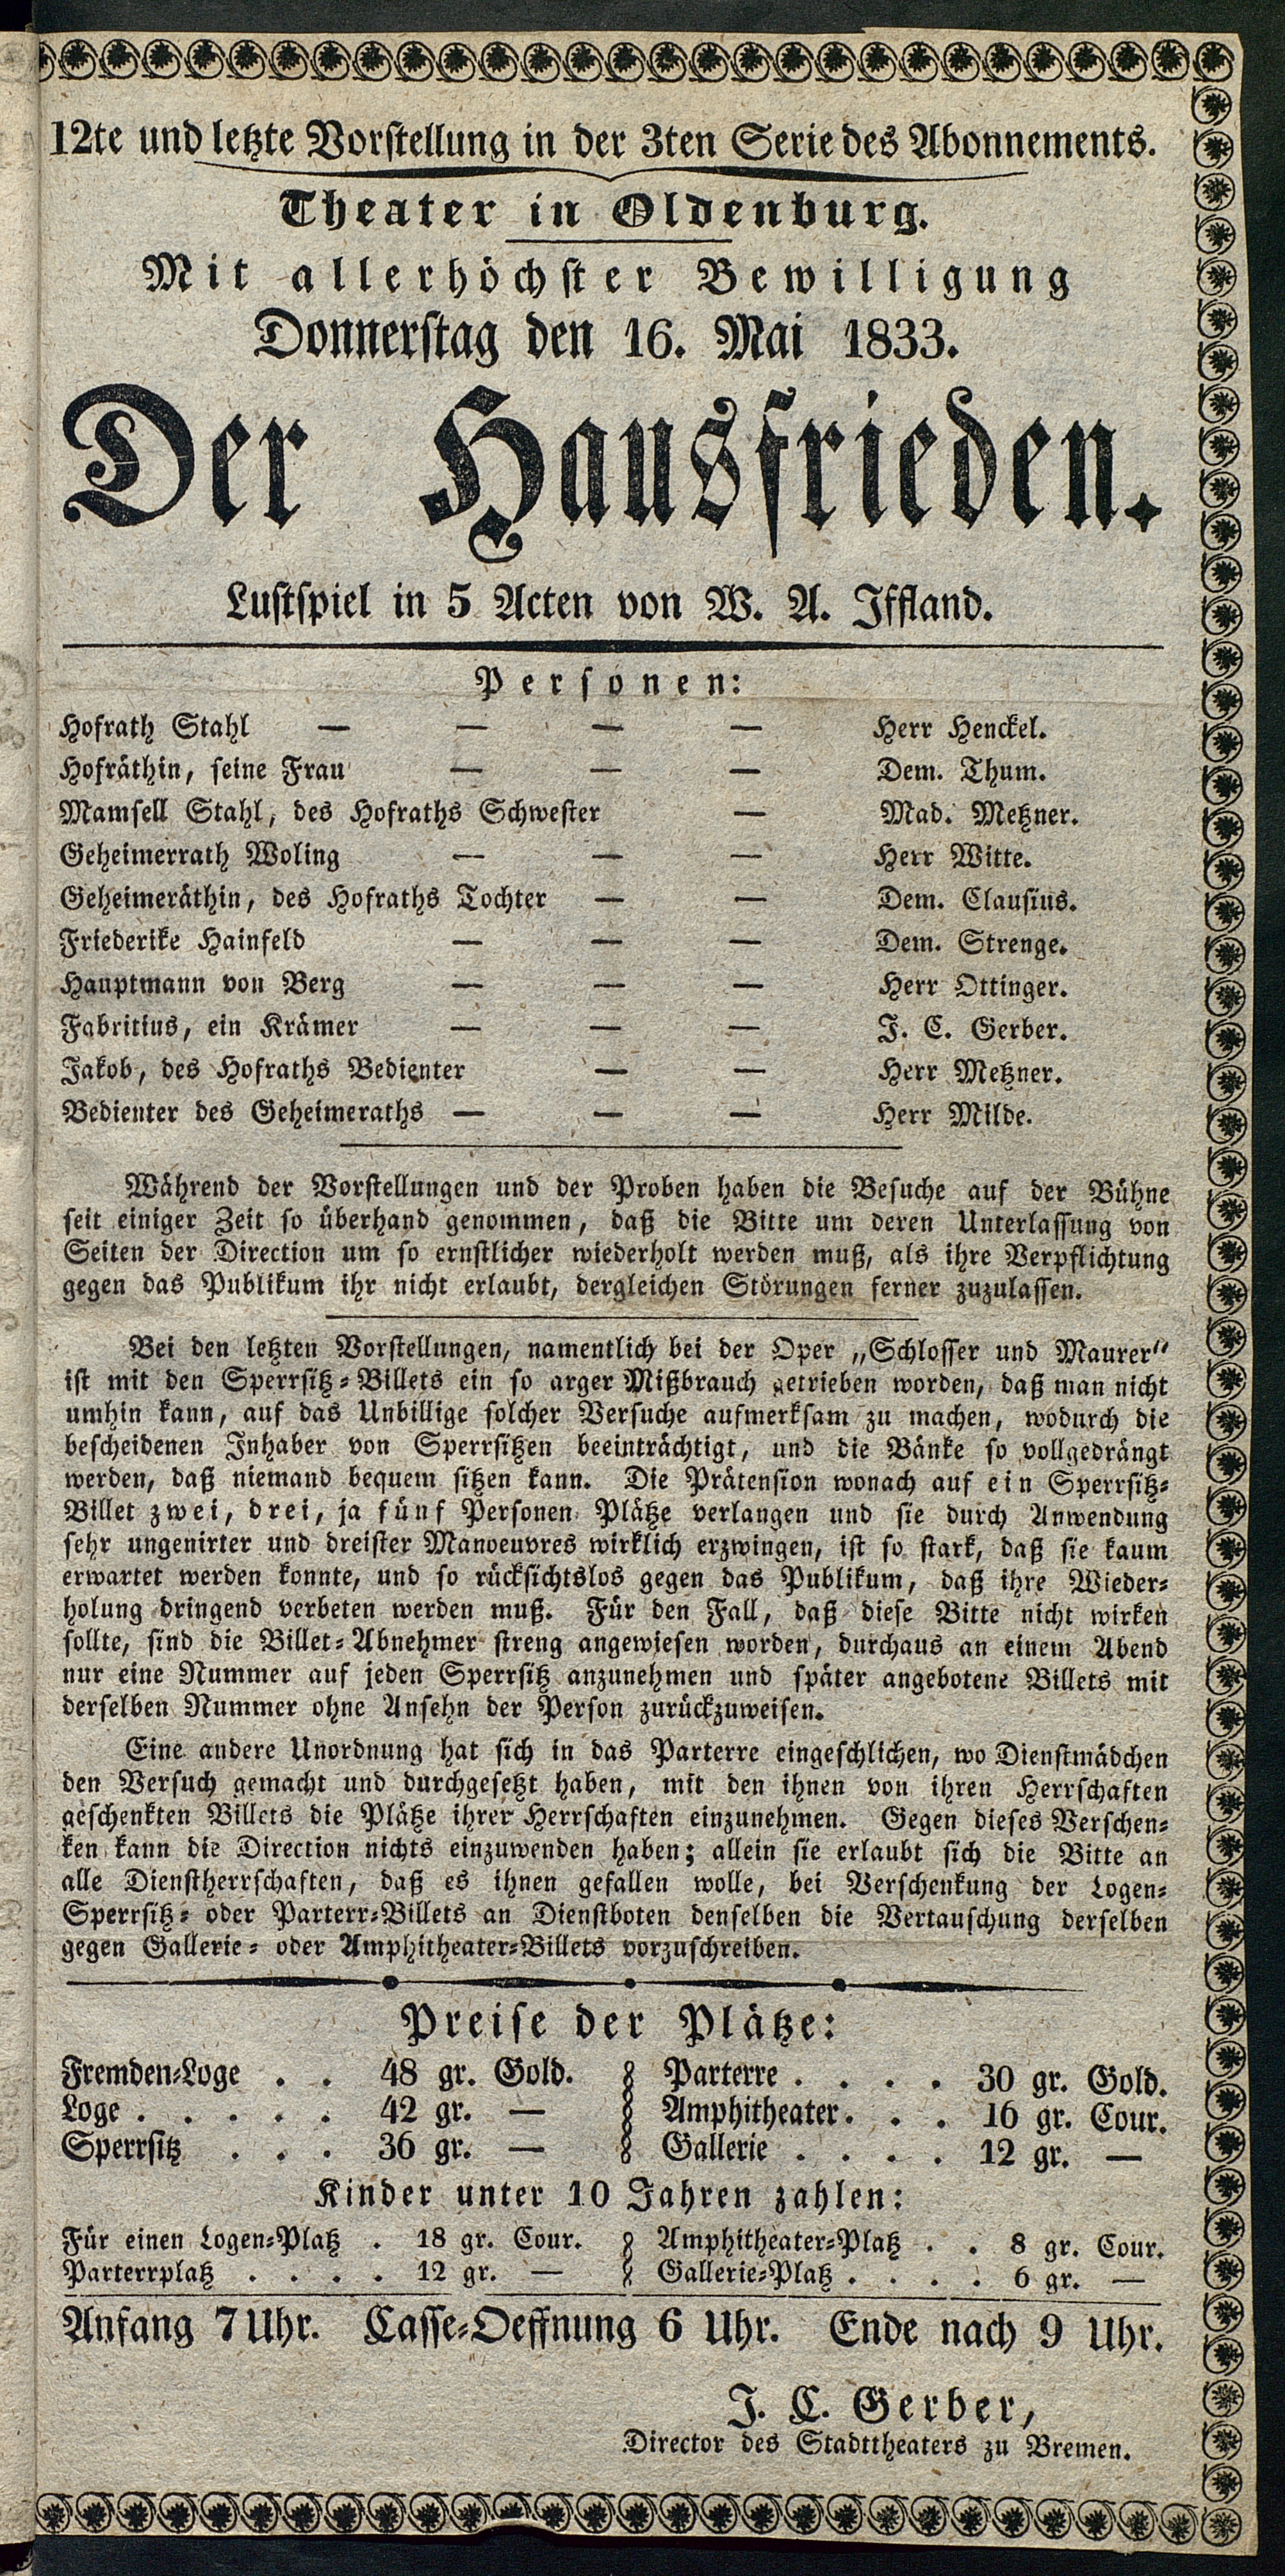 12te und letzte Vorstellung in der 3ten Serie des Abonnements.
Theater in Oldenburg.
Mit allerhöchster Bewilligung
Donnerstag den 16. Mai 1833.
Der Hausfrieden.
Lustspiel in 5 Acten von W. A. Iffland.
Personen:
Hofrath Stahl — — — — Herr Henckel.
Hofräthin, seine Frau — — — Dem. Thum.
Mamsell Stahl, des Hofraths Schwester — Mad. Metzner.
Geheimerrath Woling — — — Herr Witte.
Geheimeräthin, des Hofraths Tochter — — Dem. Clausius.
Friederike Hainfeld — — — Dem. Strenge.
Hauptmann von Berg — — — Herr Ottinger.
Fabritius, ein Krämer — — — J. C. Gerber.
Jakob, des Hofraths Bedienter — — Herr Metzner.
Bedienter des Geheimeraths — — — Herr Milde.
Während der Vorstellungen und der Proben haben die Besuche auf der Bühne
seit einiger Zeit so überhand genommen, daß die Bitte um deren Unterlassung von
Seiten der Direction um so ernstlicher wiederholt werden muß, als ihre Verpflichtung
gegen das Publikum ihr nicht erlaubt, dergleichen Störungen ferner zuzulassen.
Bei den letzten Vorstellungen, namentlich bei der Oper „Schlosser und Maurer“
ist mit den Sperrsitz-Billets ein so arger Mißbrauch getrieben worden, daß man nicht
umhin kann, auf das Unbillige solcher Versuche aufmerksam zu machen, wodurch die
bescheidenen Inhaber von Sperrsitzen beeinträchtigt, und die Bänke so vollgedrängt
werden, daß niemand bequem sitzen kann. Die Prätension wonach auf ein Sperrsitz-
Billet zwei, drei, ja fünf Personen Plätze verlangen und sie durch Anwendung
sehr ungenirter und dreister Manoeuvres wirklich erzwingen, ist so stark, daß sie kaum
erwartet werden konnte, und so rücksichtslos gegen das Publikum, daß ihre Wieder-
holung dringend verbeten werden muß. Für den Fall, daß diese Bitte nicht wirken
sollte, sind die Billet-Abnehmer streng angewiesen worden, durchaus an einem Abend
nur eine Nummer auf jeden Sperrsitz anzunehmen und später angebotene Billets mit
derselben Nummer ohne Ansehn der Person zurückzuweisen.
Eine andere Unordnung hat sich in das Parterre eingeschlichen, wo Dienstmädchen
den Versuch gemacht und durchgesetzt haben, mit den ihnen von ihren Herrschaften
geschenkten Billets die Plätze ihrer Herrschaften einzunehmen. Gegen dieses Verschen-
ken kann die Direction nichts einzuwenden haben; allein sie erlaubt sich die Bitte an
alle Dienstherrschaften, daß es ihnen gefallen wolle, bei Verschenkung der Logen-
Sperrsitz- oder Parterr-Billets an Dienstboten denselben die Vertauschung derselben
gegen Gallerie- oder Amphitheater-Billets vorzuschreiben.
Preise der Plätze:
Fremden-Loge . . 48 gr. Gold. Parterre . . . . 30 gr. Gold.
Loge . . . . . 42 gr. — Amphitheater . . . 16 gr. Cour.
Sperrsitz . . . 36 gr. — Gallerie . . . . 12 gr. —
Kinder unter 10 Jahren zahlen:
Für einen Logen-Platz . 18 gr. Cour. Amphitheater-Platz . . 8 gr. Cour.
Parterrplatz . . . . 12 gr. — Gallerie-Platz . . . . 6 gr. —
Anfang 7 Uhr. Casse-Oeffnung 6 Uhr. Ende nach 9 Uhr.
J. C. Gerber,
Director des Stadttheaters zu Bremen.